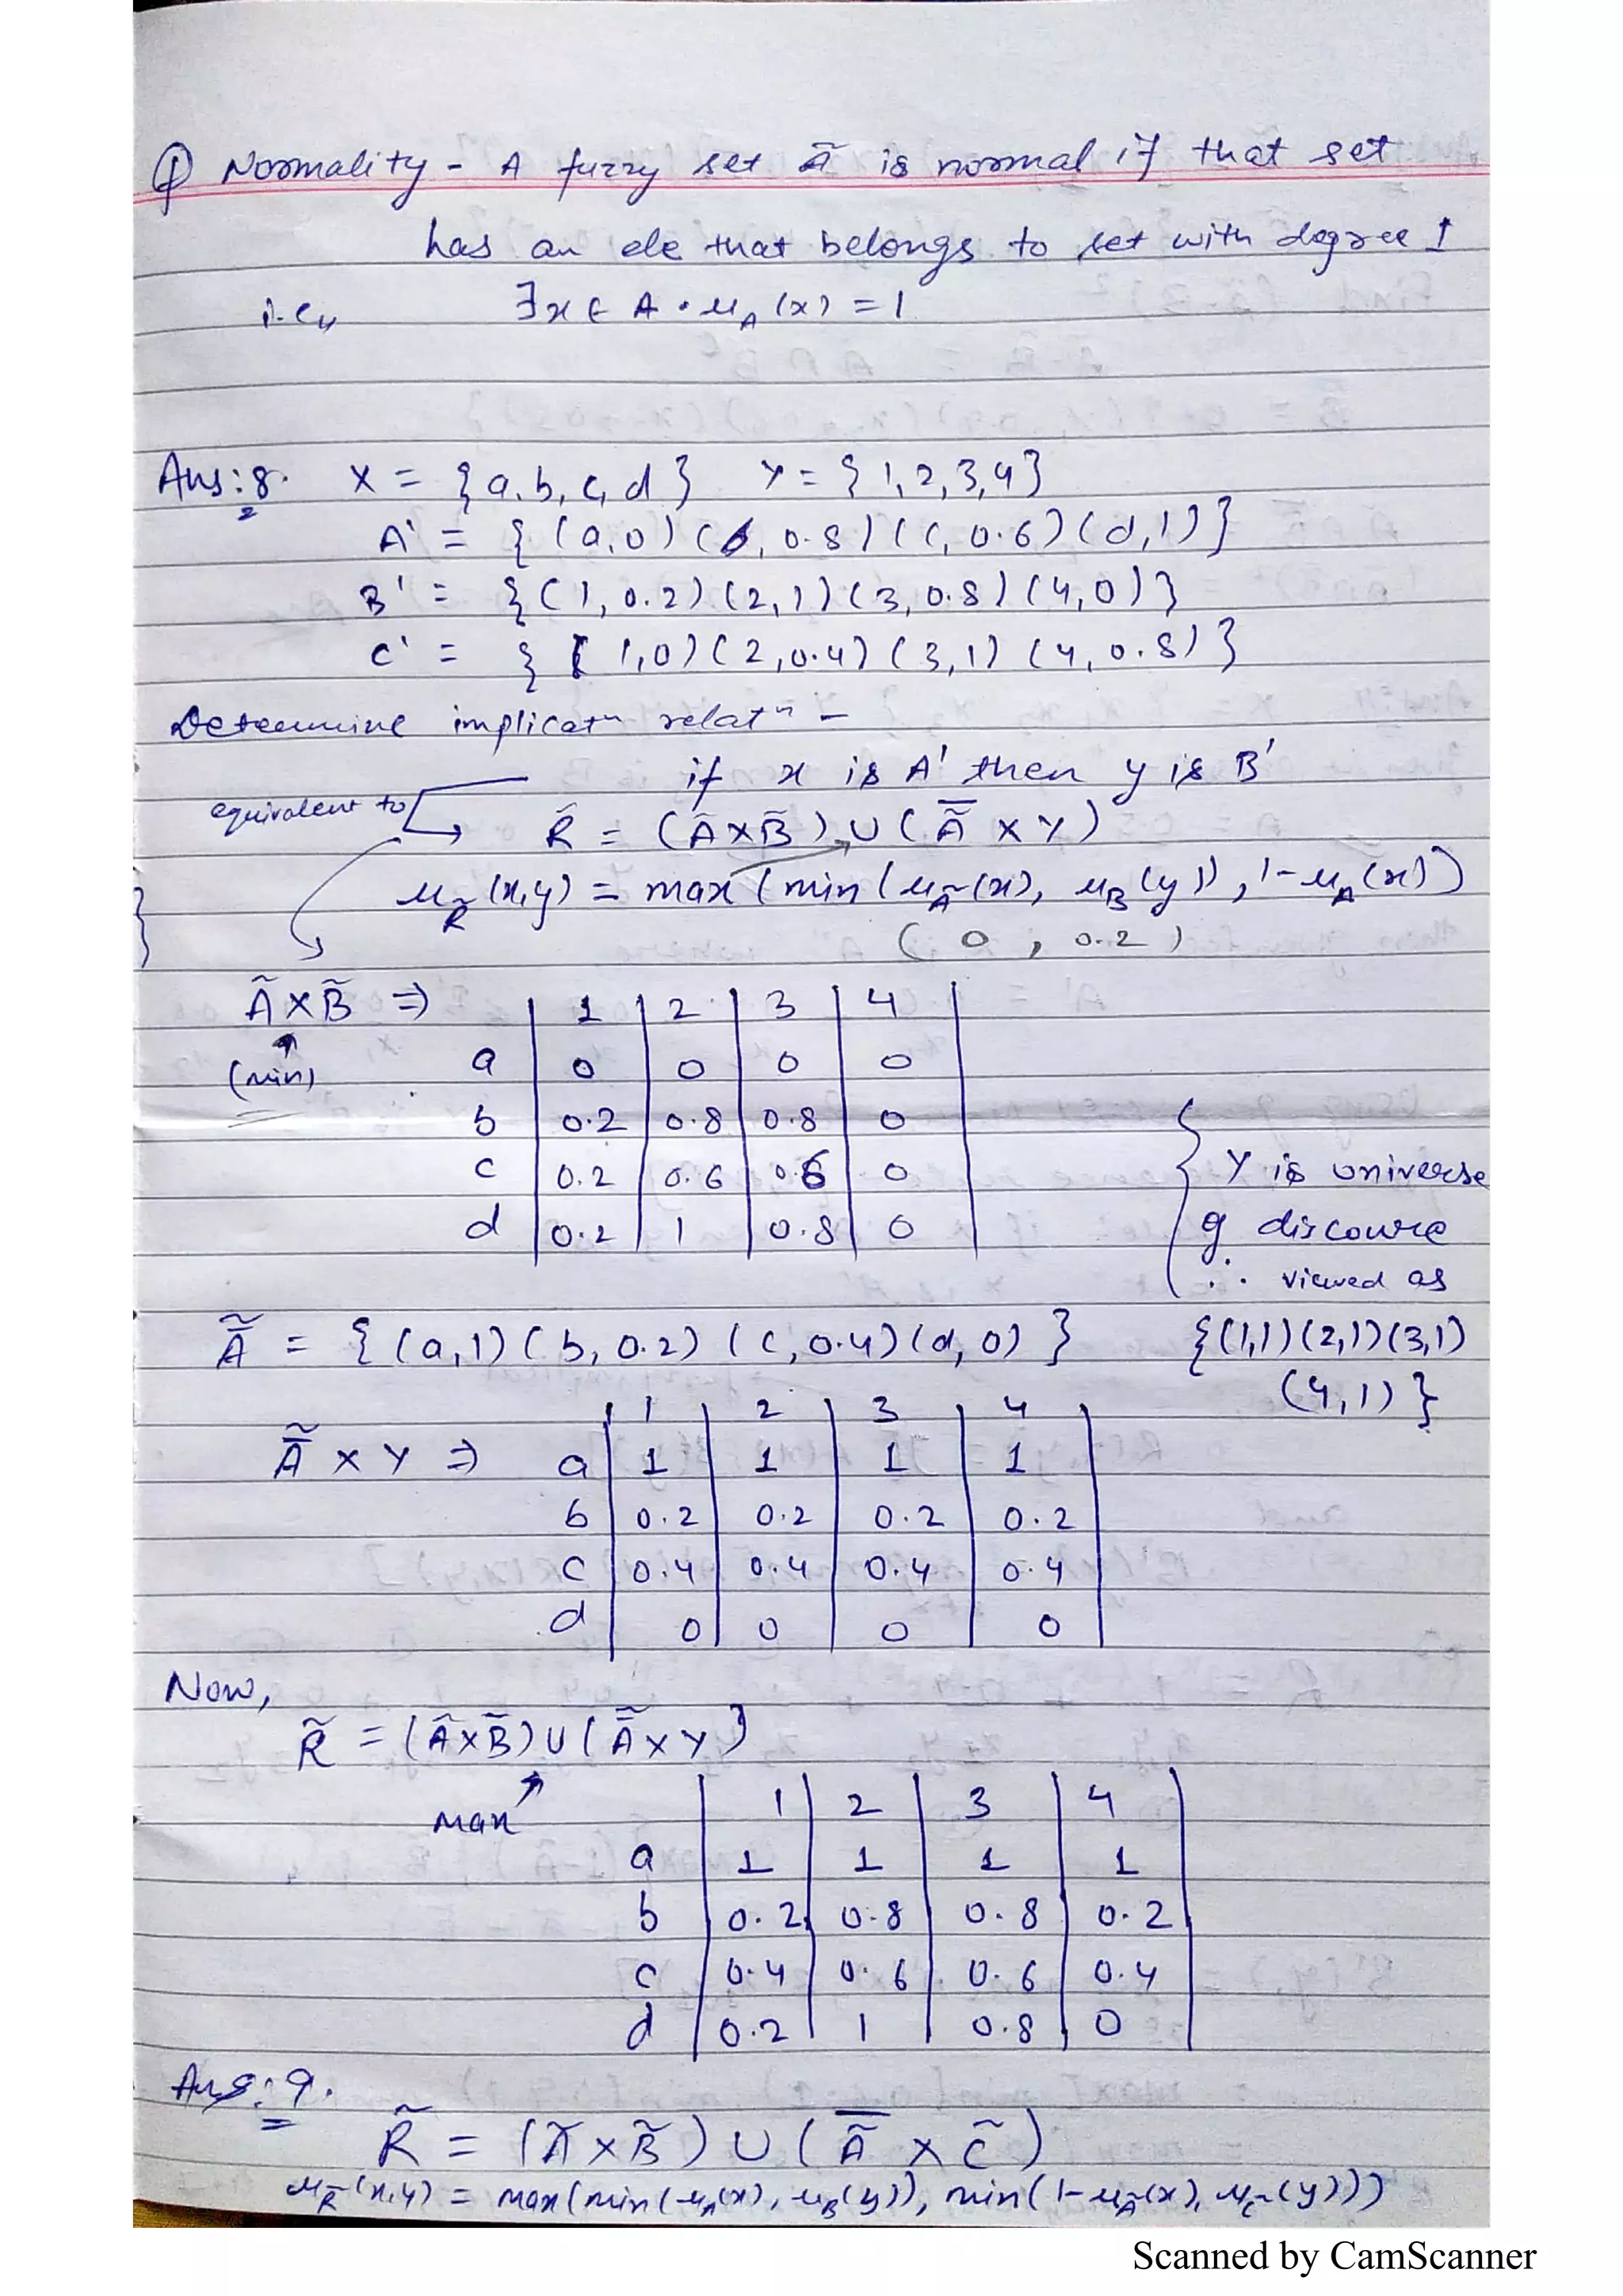 ① Normality - A fuzzy set Ã is normal if that set
has an ele that belongs to set with degree 1
i.e., ∃x ∈ A · μ_A(x) = 1
Ans: 8. X = {a, b, c, d} Y = {1, 2, 3, 4}
A' = {(a,0) (b, 0.8) (c, 0.6) (d,1)}
B' = {(1, 0.2) (2,1) (3, 0.8) (4,0)}
C' = {(1,0) (2,0.4) (3,1) (4, 0.8)}
Determine implicatⁿ relatⁿ -
if x is A' then y is B'
equivalent to
R̃ = (Ã×B̃) ∪ (Ã̅ × Y)
μ_R̃(x,y) = max(min(μ_Ã(x), μ_B(y)), 1-μ_A(x))
(0, 0.2)
Ã×B̃ ⇒ 1 2 3 4
(min) a 0 0 0 0
b 0.2 0.8 0.8 0
c 0.2 0.6 0.6 0
d 0.2 1 0.8 0
{ Y is universe
of discourse
∴ viewed as
{(1,1) (2,1) (3,1)
(4,1)}
Ã̅ = {(a,1) (b, 0.2) (c, 0.4) (d, 0)}
1 2 3 4
Ã̅ × Y ⇒ a 1 1 1 1
b 0.2 0.2 0.2 0.2
c 0.4 0.4 0.4 0.4
d 0 0 0 0
Now,
R̃ = (Ã×B̃) ∪ (Ã̅ × Y)
max
1 2 3 4
a 1 1 1 1
b 0.2 0.8 0.8 0.2
c 0.4 0.6 0.6 0.4
d 0.2 1 0.8 0
Ans: 9.
R̃ = (Ã × B̃) ∪ (Ã̅ × C̃)
μ_R̃(x,y) = max(min(μ_A(x), μ_B(y)), min(1-μ_Ã(x), μ_C̃(y)))
Scanned by CamScanner